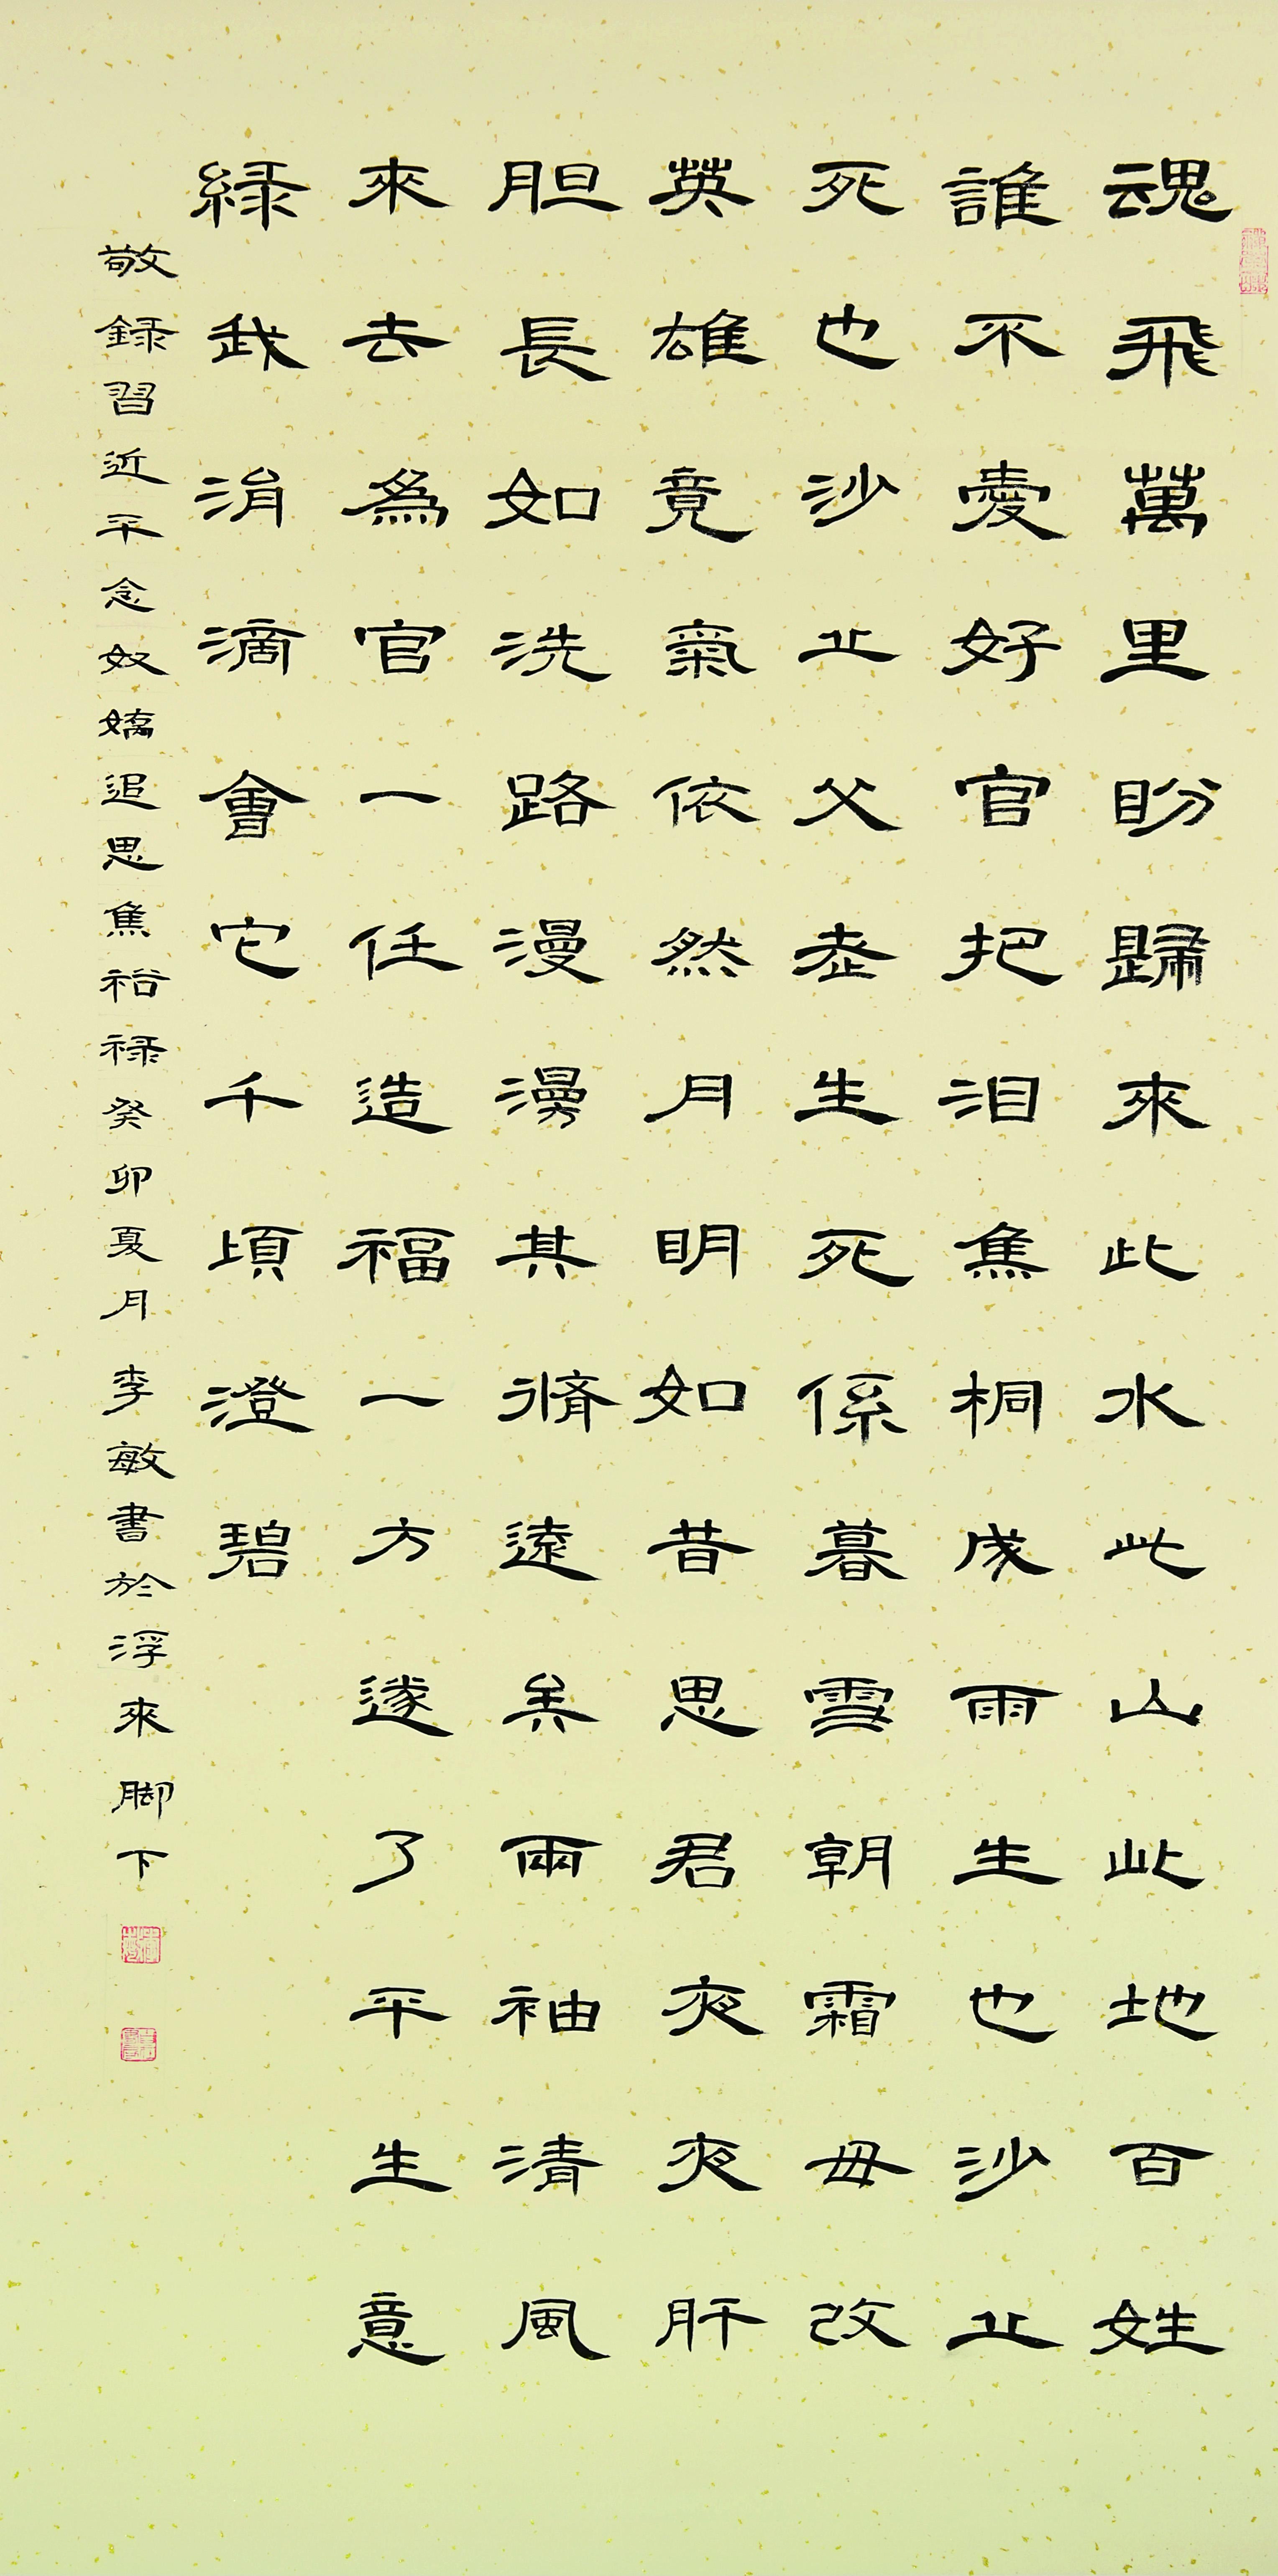 魂飛萬里盼歸來此水此山此地百姓
誰不愛好官把泪焦桐成雨生也沙丘
死也沙丘父老生死係暮雪朝霜毋改
英雄竟氣依然月明如昔思君夜夜肝
胆長如洗路漫漫其脩遠矣兩袖清風
來去為官一任造福一方遂了平生意
緑我涓滴會它千頃澄碧
敬録習近平念奴嬌追思焦裕禄癸卯夏月李敏書於浮來脚下